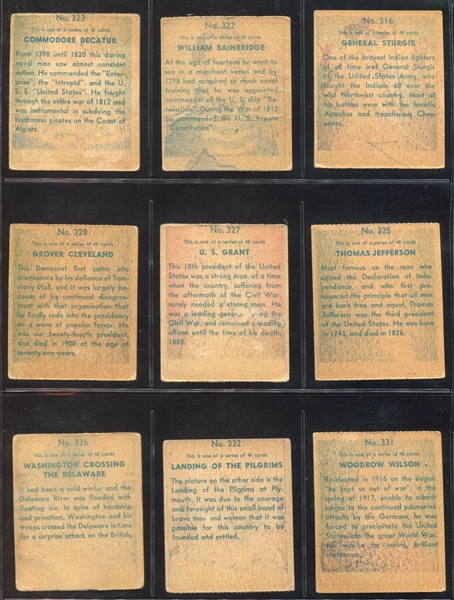 No. 323
This is one of a series of 48 cards
COMMODORE DECATUR
From 1798 until 1820 this daring
naval man saw almost constant
action. He commanded the "Enter-
prise", the "Intrepid", and the U.
S. S. "United States". He fought
through the entire war of 1812 and
was instrumental in subduing the
barbarous pirates on the Coast of
Algiers.
No. 322
This is one of a series of 48 cards
WILLIAM BAINBRIDGE
At the age of fourteen he went to
sea in a merchant vessel and by
1798 had acquired so much naval
training that he was appointed
commander of the U. S. ship
During the War of 1812
he commanded the U. S. frigate
"Constitution".
No. 316
This is one of a series of 48 cards
GENERAL STURGIS
One of the bravest Indian fighters
of all time was General Sturgis
of the United States Army, who
fought the Indians all over the
wild Northwest country. Most of
his battles were with the fanatic
Apaches and treacherous Chey-
ennes.
No. 328
This is one of a series of 48 cards
GROVER CLEVELAND
This Democrat first came into
prominence by his defiance of Tam-
many Hall, and it was largely be-
cause of his continued disagree-
ment with that organization that
he finally rode into the presidency
on a wave of popular fervor. He
was our twenty-fourth president,
and died in 1908 at the age of
seventy-one years.
No. 327
This is one of a series of 48 cards
U. S. GRANT
This 18th president of the United
States was a strong man, at a time
when the country, suffering from
the aftermath of the Civil War,
sorely needed a strong man. He
was a leading general during the
Civil War, and remained a leading
citizen until the time of his death,
1885.
No. 325
This is one of a series of 48 cards
THOMAS JEFFERSON
Most famous as the man who
signed the Declaration of Inde-
pendence, and who first pro-
nounced the principle that all men
are born free and equal, Thomas
Jefferson was the third president
of the United States. He was born
in 1743, and died in 1826.
No. 336
This is one of a series of 48 cards
WASHINGTON CROSSING
THE DELAWARE
It had been a cold winter and the
Delaware River was flooded with
floating ice. In spite of hardship
and privation, Washington and his
troops crossed the Delaware in time
for a surprise attack on the British.
No. 332
This is one of a series of 48 cards
LANDING OF THE PILGRIMS
The picture on the other side is the
Landing of the Pilgrims at Ply-
mouth. It was due to the courage
and foresight of this small band of
brave men and women that it was
possible for this country to be
founded and settled.
No. 331
This is one of a series of 48 cards
WOODROW WILSON
Re-elected in 1916 on the slogan
"he kept us out of war", in the
spring of 1917, unable to submit
longer to the continued submarine
attacks by the Germans, he was
forced to precipitate the United
States into the great World War.
He was a far-seeing, brilliant
statesman.